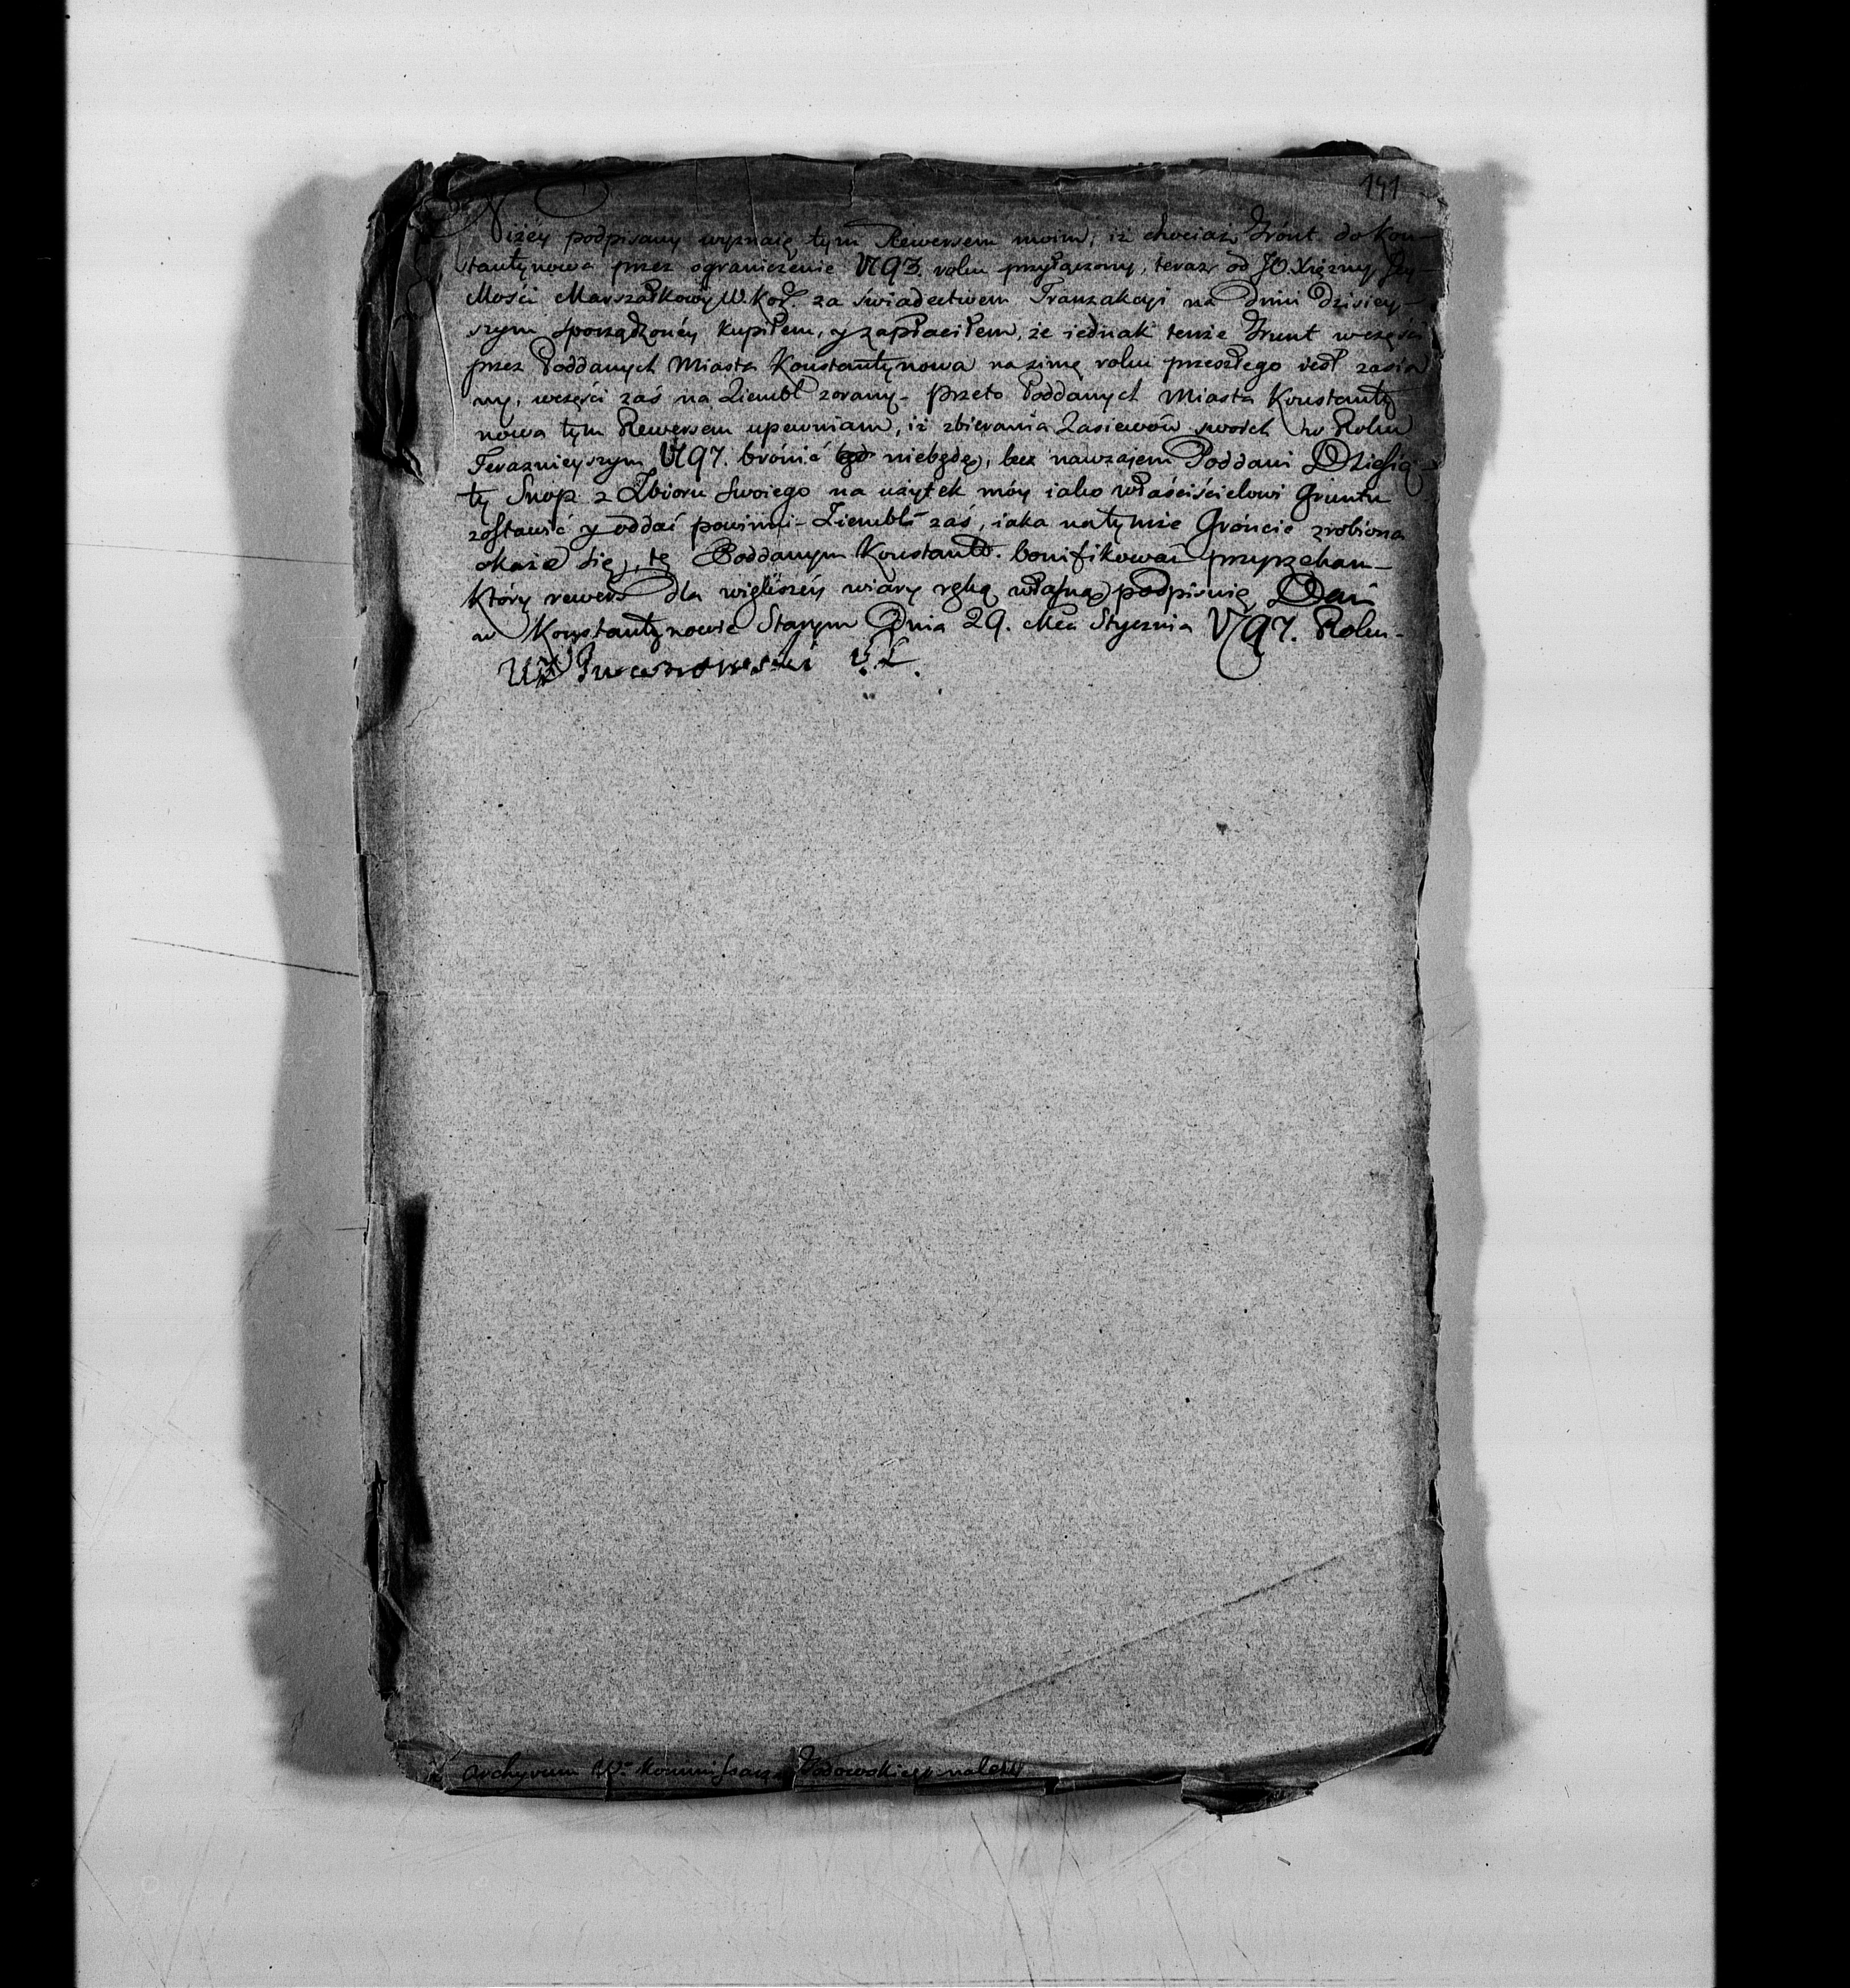 141
Niżéy podpisany wyznaię tym Rewersem moim, iż chociaż Grónt do Kon-
stantynowa przez ograniczenie 1793. roku przyłączony, teraz od JO. Xiężny Jey-
Mości Marszałkowy W. Koř. za świadectwem Tranzakcyi na Dniu Dzisiey-
szym sporządzonéy kupiłem, y zapłaciłem, że iednak tenże Grunt w części
przez Poddanych Miasta Konstantynowa na zimę roku przeszłego iest zasia
ny, w części zaś na Ziembl zorany - Przeto Poddanych Miasta Konstanty
nowa tym Rewersem upewniam, iż zbierania Zasiewów swoich w Roku
Teraznieyszym 1797. bronić niebędę, lecz nawzaiem Poddani Dziesią-
ty Snop z Zbioru swoiego na użytek móy iako właściścielowi Gruntu
zostawić y oddać powinni - Ziembl zaś, iaka na tymże Gróncie zrobiona
okaże się, tę Poddanym Konstantt. bonifikować przyrzekam -
Który rewers dla większéy wiary ręką własną podpisuię Dań
w Konstantynowie Starym Dnia 29. Mca Stycznia 1797. Roku -
Archyvum Wo Kommissarza należy